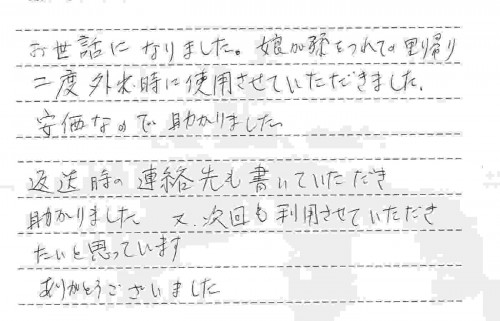 お世話になりました。娘が孫をつれての里帰り
二度外出時に使用させていただきました。
安価なので助かりました。
返送時の連絡先も書いていただき
助かりました 又、次回も利用させていただき
たいと思っています
ありがとうございました